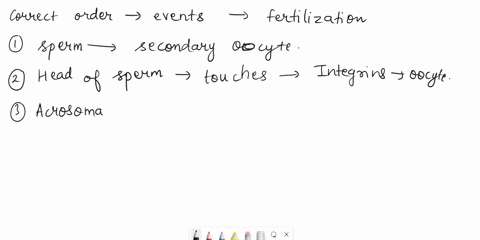 Correct order → events → fertilization
① sperm → secondary oocyte.
② Head of sperm → touches → Integrins → oocyte.
③ Acrosoma